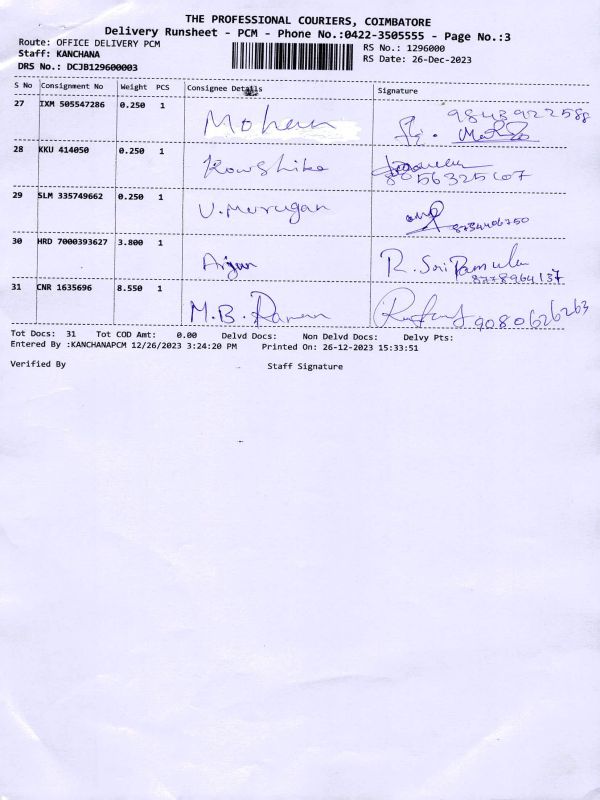 THE PROFESSIONAL COURIERS, COIMBATORE
Delivery Runsheet - PCM - Phone No.:0422-3505555 - Page No.:3
Route: OFFICE DELIVERY PCM
Staff: KANCHANA
DRS No.: DCJB129600003
RS No.: 1296000
RS Date: 26-Dec-2023
S No Consignment No Weight PCS Consignee Details Signature
27 IXM 505547286 0.250 1 Mohan 9843922588
28 KKU 414050 0.250 1 Kowshika 8056325607
29 SLM 335749662 0.250 1 V. Murugan
30 HRD 7000393627 3.800 1 Arjun R. Sri 8778964137
31 CNR 1635696 8.550 1 M.B. Raman 9080626263
Tot Docs: 31 Tot COD Amt: 0.00 Delvd Docs: Non Delvd Docs: Delvy Pts:
Entered By :KANCHANAPCM 12/26/2023 3:24:20 PM Printed On: 26-12-2023 15:33:51
Verified By Staff Signature